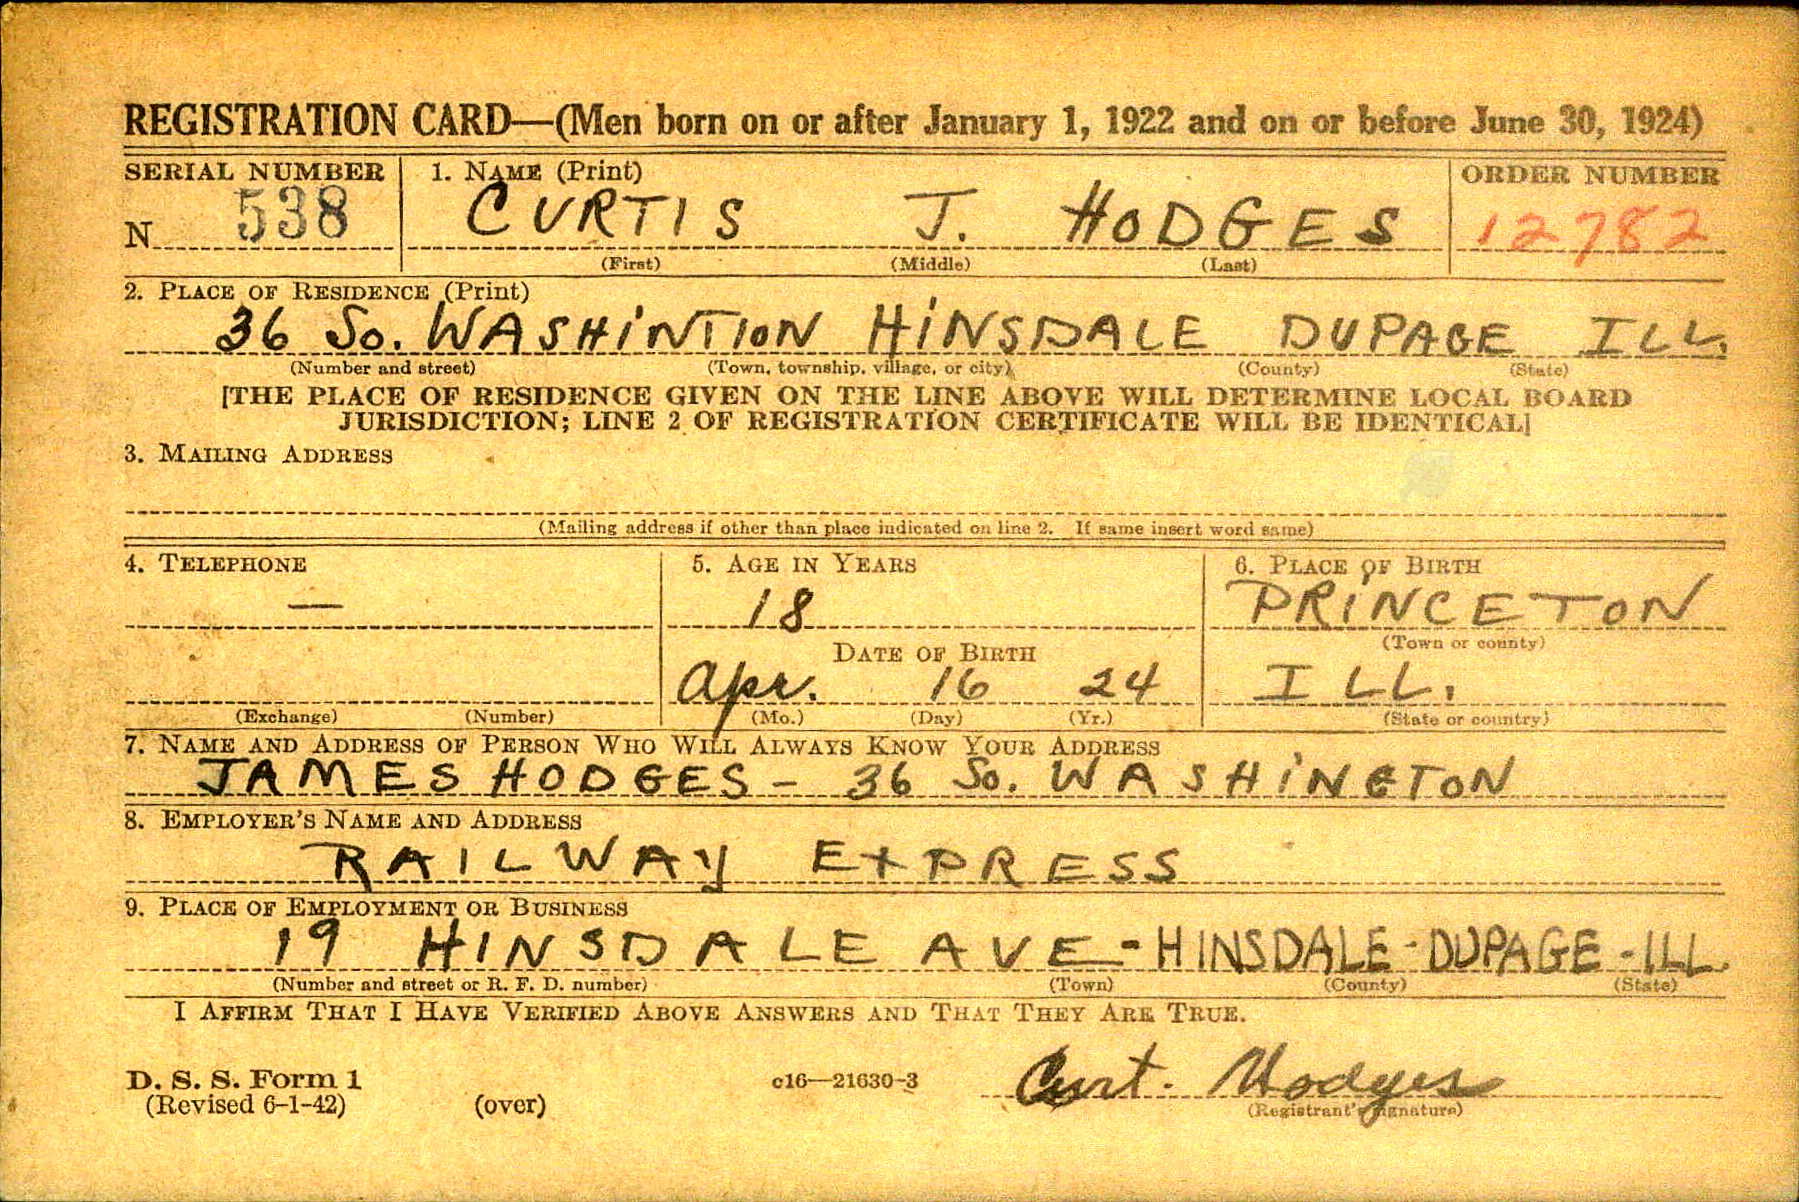 REGISTRATION CARD—(Men born on or after January 1, 1922 and on or before June 30, 1924)
SERIAL NUMBER 1. NAME (Print) ORDER NUMBER
N 538 CURTIS J. HODGES 12782
(First) (Middle) (Last)
2. PLACE OF RESIDENCE (Print)
36 So. WASHINTION HINSDALE DUPAGE ILL.
(Number and street) (Town, township, village, or city) (County) (State)
[THE PLACE OF RESIDENCE GIVEN ON THE LINE ABOVE WILL DETERMINE LOCAL BOARD
JURISDICTION; LINE 2 OF REGISTRATION CERTIFICATE WILL BE IDENTICAL]
3. MAILING ADDRESS
(Mailing address if other than place indicated on line 2. If same insert word same)
4. TELEPHONE 5. AGE IN YEARS 6. PLACE OF BIRTH
— 18 PRINCETON
(Town or county)
DATE OF BIRTH
Apr. 16 24 ILL.
(Exchange) (Number) (Mo.) (Day) (Yr.) (State or country)
7. NAME AND ADDRESS OF PERSON WHO WILL ALWAYS KNOW YOUR ADDRESS
JAMES HODGES - 36 So. WASHINGTON
8. EMPLOYER'S NAME AND ADDRESS
RAILWAY EXPRESS
9. PLACE OF EMPLOYMENT OR BUSINESS
19 HINSDALE AVE - HINSDALE - DUPAGE - ILL.
(Number and street or R. F. D. number) (Town) (County) (State)
I AFFIRM THAT I HAVE VERIFIED ABOVE ANSWERS AND THAT THEY ARE TRUE.
D. S. S. Form 1 c16—21630-3 Curt. Hodges
(Revised 6-1-42) (over) (Registrant's signature)